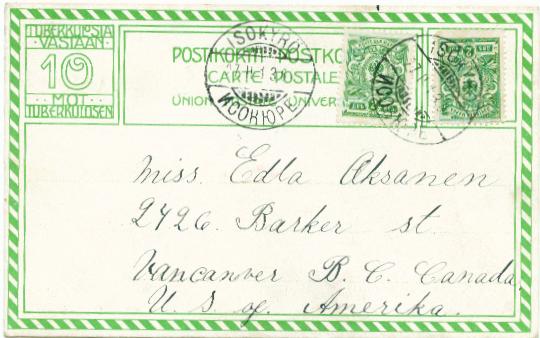 TUBERKULOSIA
VASTAAN
10
MOT
TUBERKULOSEN
POSTIKORTTI POSTKO
CARTE POSTALE
UNION UNIVER
ISOKYRÖ
ИСОКЮРЕ
Miss. Edla Aksanen
2426 Barker st.
Vancanver B. C. Canada
U. S. of Amerika.